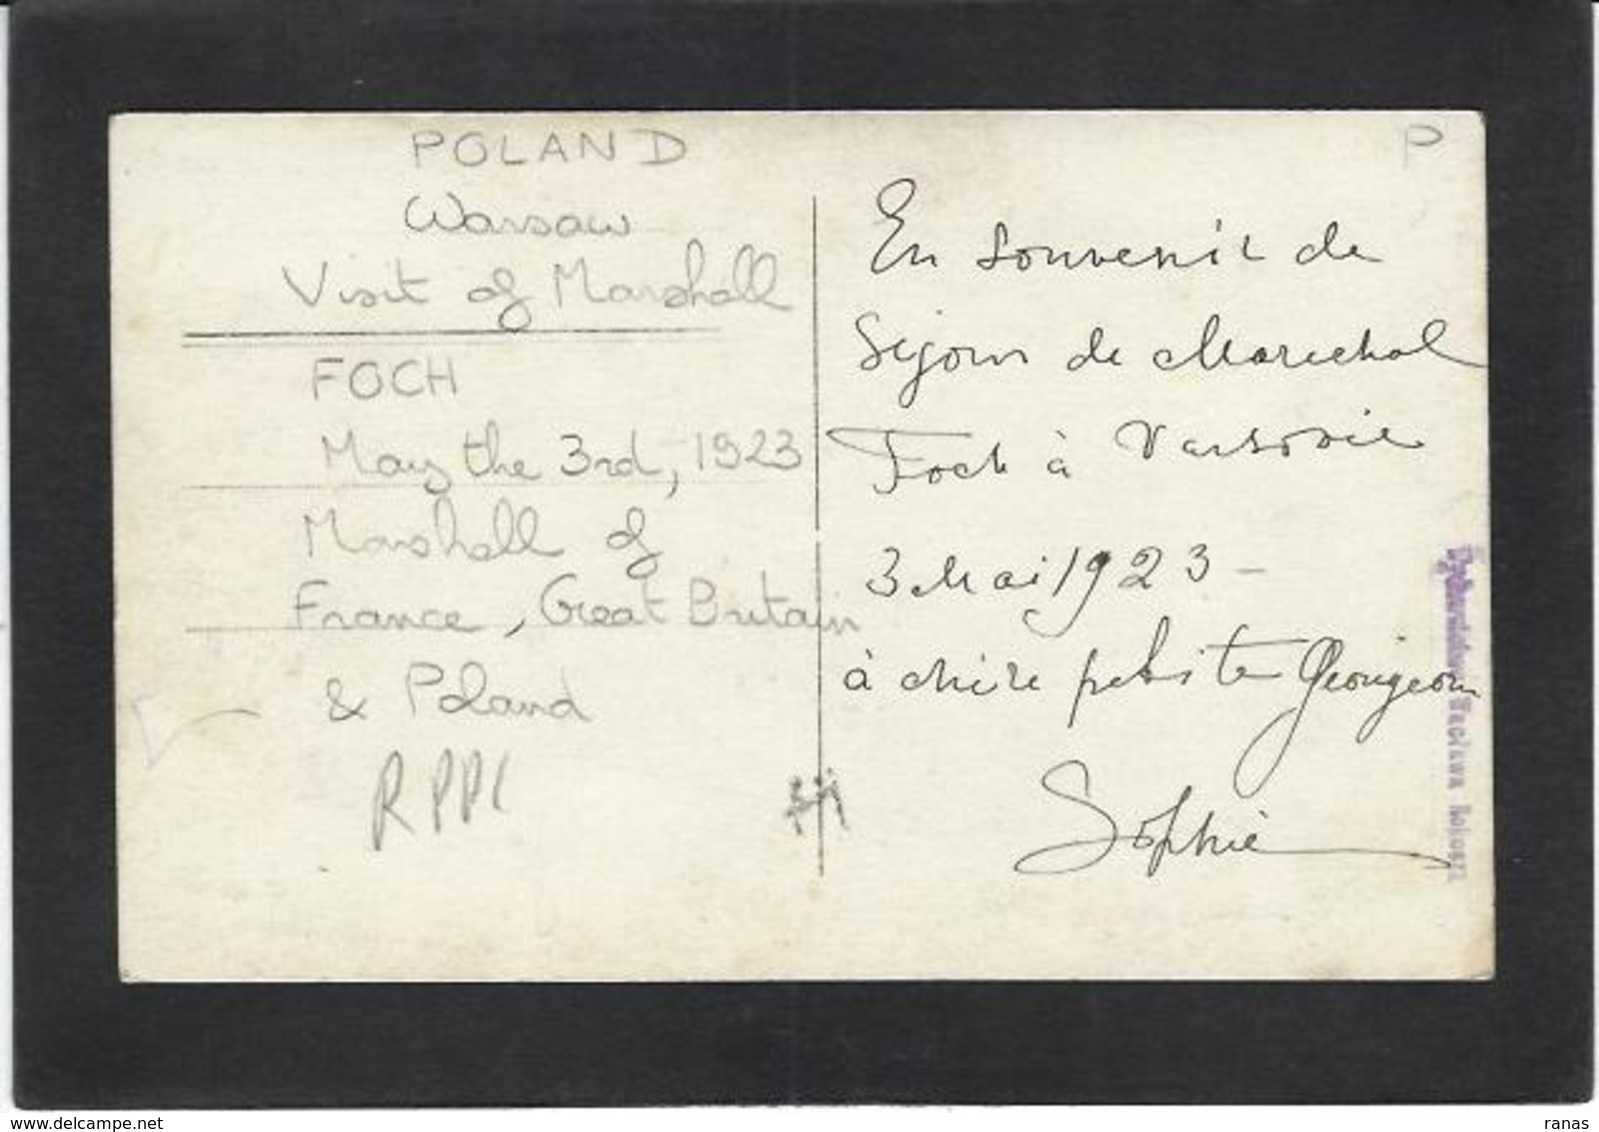 POLAND
Warsaw
Visit of Marshall
FOCH
May the 3rd, 1923
Marshall of
France, Great Britain
& Poland
RPPC
P
En souvenir de
Sejour de Marechal
Foch à Varsovie
3 Mai 1923 –
à chère petite Georgeon
Sophie
Wacława
delcampe.net
ranas